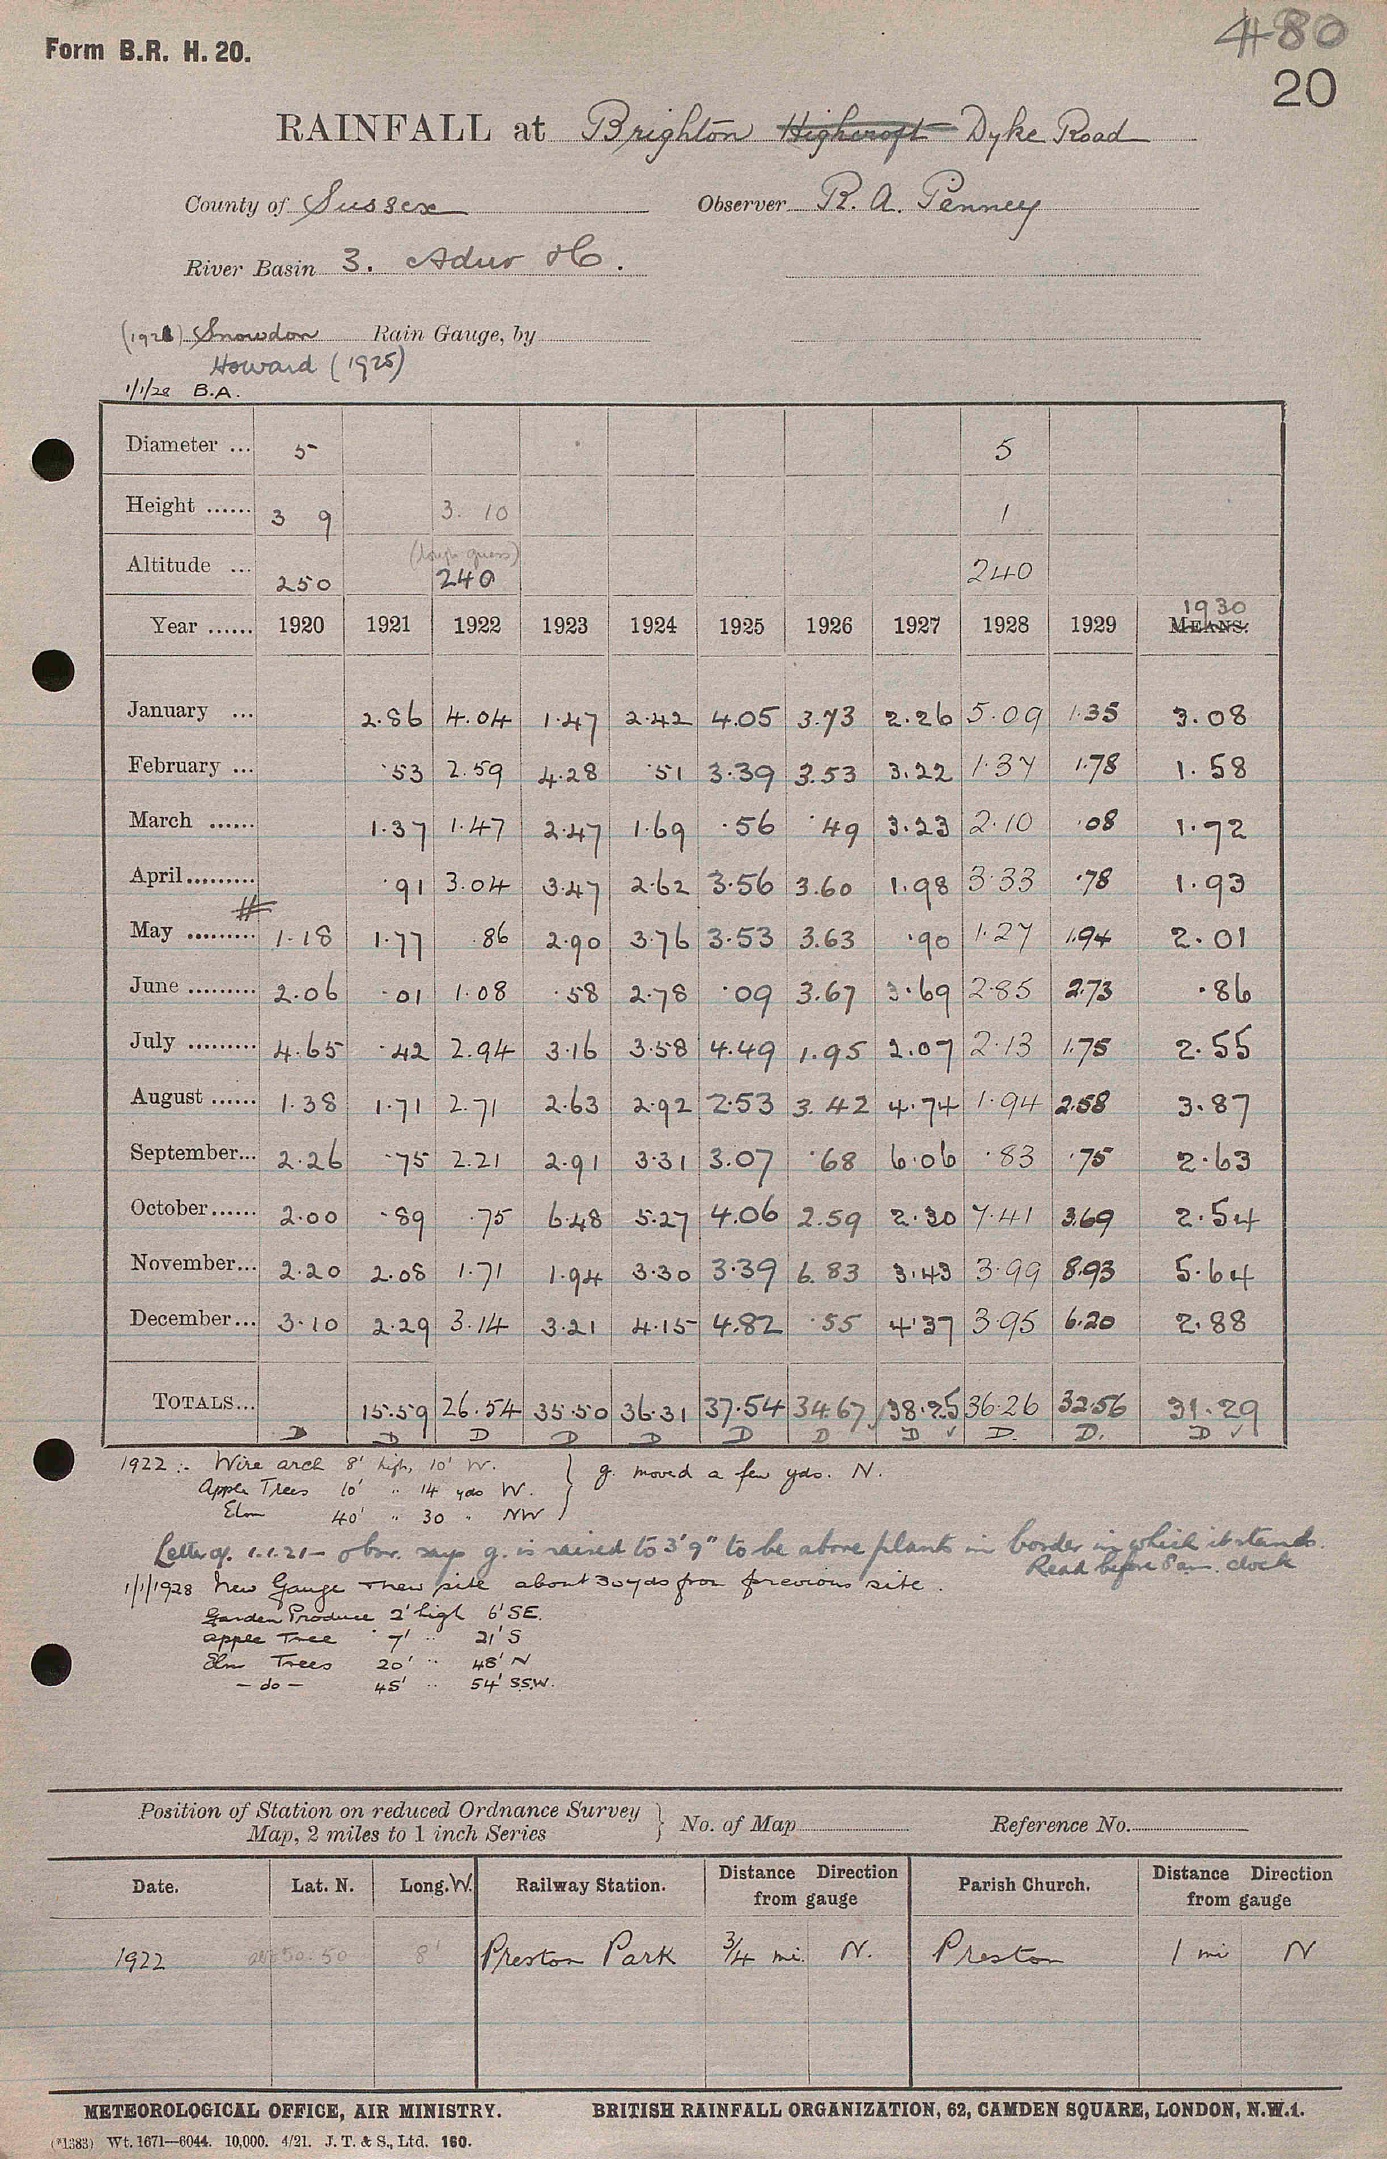 480
Form B.R. H. 20.
20
RAINFALL at Brighton Highcroft Dyke Road
County of Sussex Observer R. A. Penney
River Basin 3. Adur H.
(1921) Snowdon Rain Gauge, by
Howard (1925)
1/1/28 B.A.
Diameter ... 5 5
Height ...... 3 9 3. 10 1
(rough guess)
Altitude ... 250 240 240
1930
Year ...... 1920 1921 1922 1923 1924 1925 1926 1927 1928 1929 MEANS.
January ... 2.86 4.04 1.47 2.42 4.05 3.73 2.26 5.09 1.35 3.08
February ... .53 2.59 4.28 .51 3.39 3.53 3.22 1.37 1.78 1.58
March ...... 1.37 1.47 2.47 1.69 .56 .49 3.23 2.10 .08 1.72
April ......... .91 3.04 3.47 2.62 3.56 3.60 1.98 3.33 .78 1.93
May ......... 1.18 1.77 .86 2.90 3.76 3.53 3.63 .90 1.27 1.94 2.01
June ......... 2.06 .01 1.08 .58 2.78 .09 3.67 3.69 2.85 2.73 .86
July ......... 4.65 .42 2.94 3.16 3.58 4.49 1.95 2.07 2.13 1.75 2.55
August ...... 1.38 1.71 2.71 2.63 2.92 2.53 3.42 4.74 1.94 2.58 3.87
September... 2.26 .75 2.21 2.91 3.31 3.07 .68 6.06 .83 .75 2.63
October...... 2.00 .89 .75 6.48 5.27 4.06 2.59 2.30 7.41 3.69 2.54
November... 2.20 2.08 1.71 1.94 3.30 3.39 6.83 3.43 3.99 8.93 5.64
December... 3.10 2.29 3.14 3.21 4.15 4.82 .55 4.37 3.95 6.20 2.88
TOTALS... 15.59 26.54 35.50 36.31 37.54 34.67 38.25 36.26 32.56 31.29
D D D D D D D D ✓ D. D. D ✓
1922 :- Wire arch 8' high, 10' W. } g. moved a few yds. N.
Apple Trees 10' " 14 yds W.
Elm 40' " 30 " NW
Letter of 1.1.21 – obsr. says g. is raised to 3' 9" to be above plants in border in which it stands.
Read before 8 am. clock
1/1/1928 New Gauge & new site about 30 yds from previous site.
Garden Produce 2' high 6' SE.
Apple Tree 7' " 21' S
Elm Trees 20' " 48' N
– do – 45' " 54' SSW.
Position of Station on reduced Ordnance Survey Map, 2 miles to 1 inch Series } No. of Map Reference No.
Date. Lat. N. Long. W. Railway Station. Distance Direction from gauge Parish Church. Distance Direction from gauge
1922 50.50 8' Preston Park 3/4 mi. N. Preston 1 mi N
METEOROLOGICAL OFFICE, AIR MINISTRY. BRITISH RAINFALL ORGANIZATION, 62, CAMDEN SQUARE, LONDON, N.W.1.
(*1383) Wt. 1671—6044. 10,000. 4/21. J. T. & S., Ltd. 160.